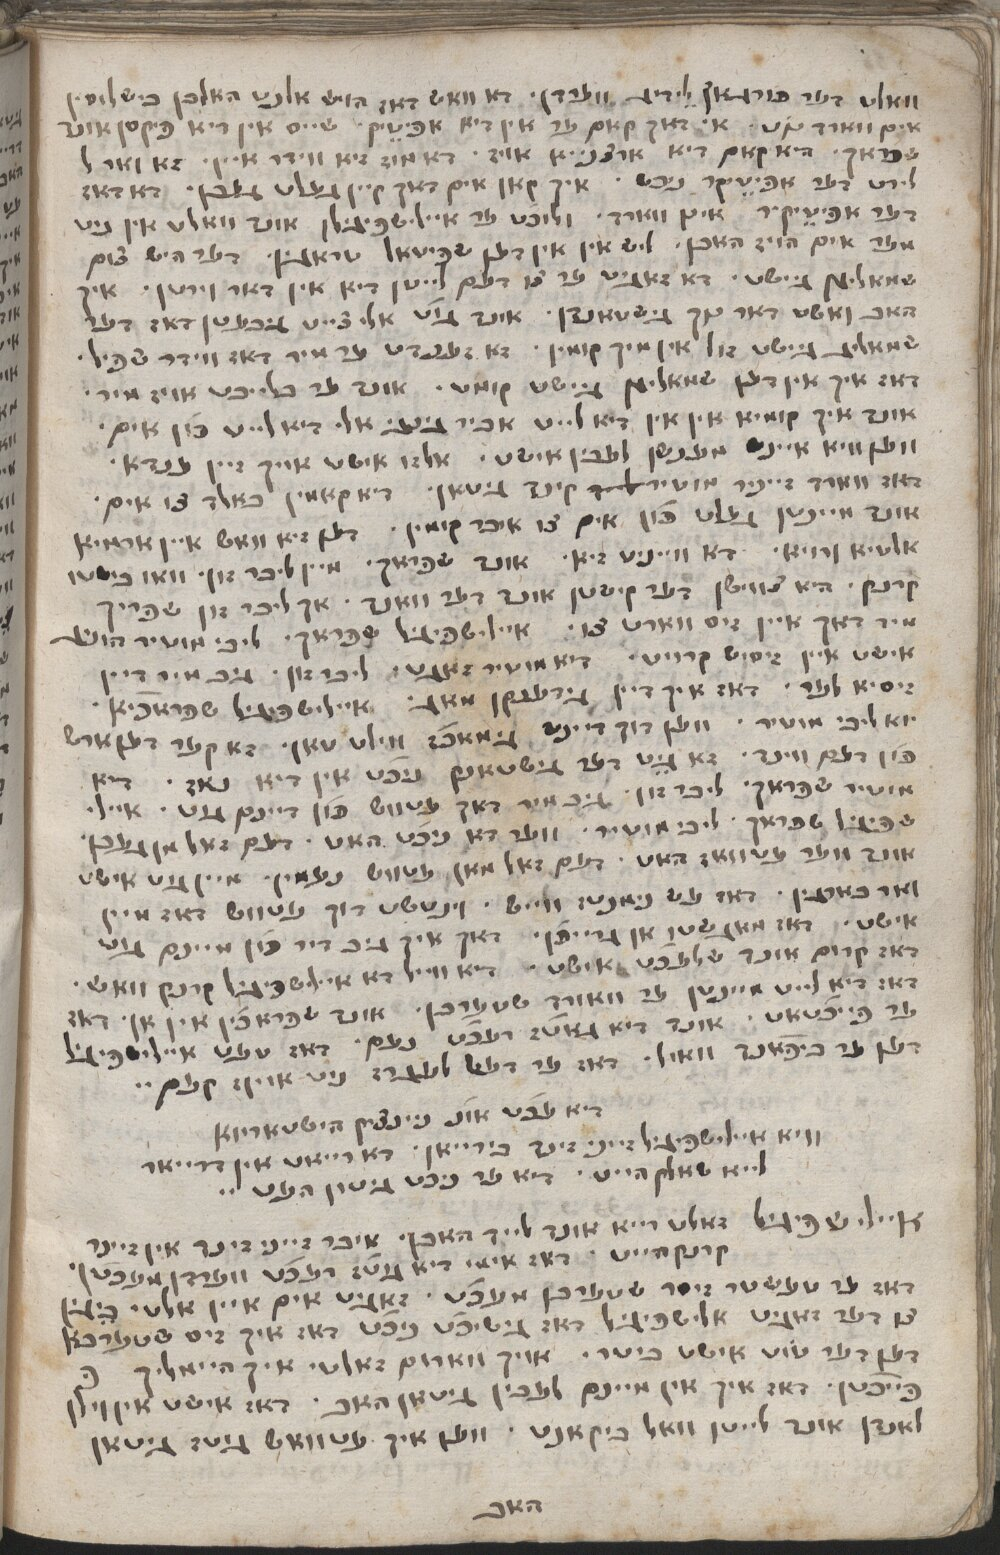 וואלט דער פורגאץ לידיג ווערדן. דא וואש דאז הויש אלנט האלבן בישלוסין
אים ווארד נוט. אי דאך קאם ער אין דיא אפיטיק. שייס אין דיא פיקסן אונד
שפראך. היא קאם דיא ארצנייא אויז. דא מוז זיא ווידר איין. זא ואר ל
לירט דער אפיטיקר ניכש. איך קאן אים דאך קיין געלט געבן. דא דאז
דער אפיטיקיר אינן ווארד. ולוכט ער איילשפיגלן אונד וואלט אין ניט
מער אים הויז האבן. ליש אין אין דען שפיטאל טראגין. דער היש צום
היילגן גיישט. דא זאגיט ער צו דעם לייטן דיא אין דאר וירטן. איך
האב ואשט דאר נוך גישטאנדן. אונד גוט אלי צייט גיבעטן דאז דער
היילג גיישט זול אין מיך קומין. זא זענדט ער מיר דאז ווידר שפיל.
דאז איך אין דען היילגן גיישט קומט. אונד ער בלייבט אויז מיר.
אונד איך קומיא אין אין דיא לייט אביר גינגי אלי דיא לייט פון אים.
ווען וויא איינש מענשן לעבין אישט. אלזו אישט אויך זיין ענדא.
דאז ווארד זיינר מוטיר קינד גיטאן. דיא קאמין באלד צו אים.
אונד מיינטן געלט פון אים צו איבר קומין. דען זיא וואש איין ארמיא
אלטיא ורויא. דא וויינט זיא. אונד שפראך. מיין ליבר זון. וואו בישטו
קרנק. היא צווישן דער קישטן אונד דער וואנד. אך ליבר זון שפריך
מיר דאך איין זיס ווארט צו. איילשפיגל שפראך. ליבי מוטיר הוניג
אישט איין זיסיש קרויט. דיא מוטיר זאגט. ליבר זון. גיב מיר דיין
זיסיא לער. דאז איך דיין גידענקן מאגי. איילשפיגל שפראכיא.
יוא ליבי מוטיר. ווען דוך דיינש גימאכז ווילט טאן. זא קער דען ארש
פון דעם ווינד. זא גיט דער גישטאנק ניכט אין דיא נאז. דיא
מוטיר שפראך. ליבר זון. גיב מיר דאך עטוש פון דיינם גוט. איילי
שפיגל שפראך. ליבי מוטיר. ווער דא ניכט האט. דעם זאל מן געבן.
אונד ווער עטוואז האט. דעם זאל מאן עטווש נעמין. מיין גוט אישט
ואר בארגין. דאז עש נימנט ווייש. וינשט דוך עטווש דאז מיין
אישט. דאז מאגשטו אן גרייפן. דאן איך גיב דיר פון מיינם גוט
דאז קרום אונד שלעכט אישט. דיא ווייל דא איילשפיגל קרנק וואש.
דאז דיא לייט מיינטן ער ווארד שטערבן. אונד שפראכין אין אן. דאז
ער פייכטאט. אונד דיא גאטש רעכט נעם. דאז טעט איילשפיגל
דען ער ביפאנד וואיל. דאז ער דעש לעגרז ניט אויפז קעם..
דיא עכט אונ נינצק הישטאריוא
וויא איילשפיגל זייני זינד ביריאן. דא רייאט אין דרייאר
לייא שאלקהייט. דיא ער ניכט גיטון העט..
איילי שפיגל זאלט רייא אונד לייד האבן. איבר זייני זינד אין זיינר
קרנקהייט. דאז אימי דיא גוטש רעכט ווערדן מעכטן.
דאז ער דעשטר זיסר שטערבן מעכט. זאגיט אים איין אלטי בייגין
צו דער זאגיט אלשפיגל דאז גישיכט ניכט דאז איך זיס שטערבא
דען דער טוט אישט ביטר. אויך ווארום זאלטי איך היימליך
בייכטן. דאז איך אין מיינם לעבין גיטאן האב. דאז אישט אין וילן
לאנדן אונד לייטן וואל ביקאנט. ווען איך עטוואש גוטז גיטאן
האב